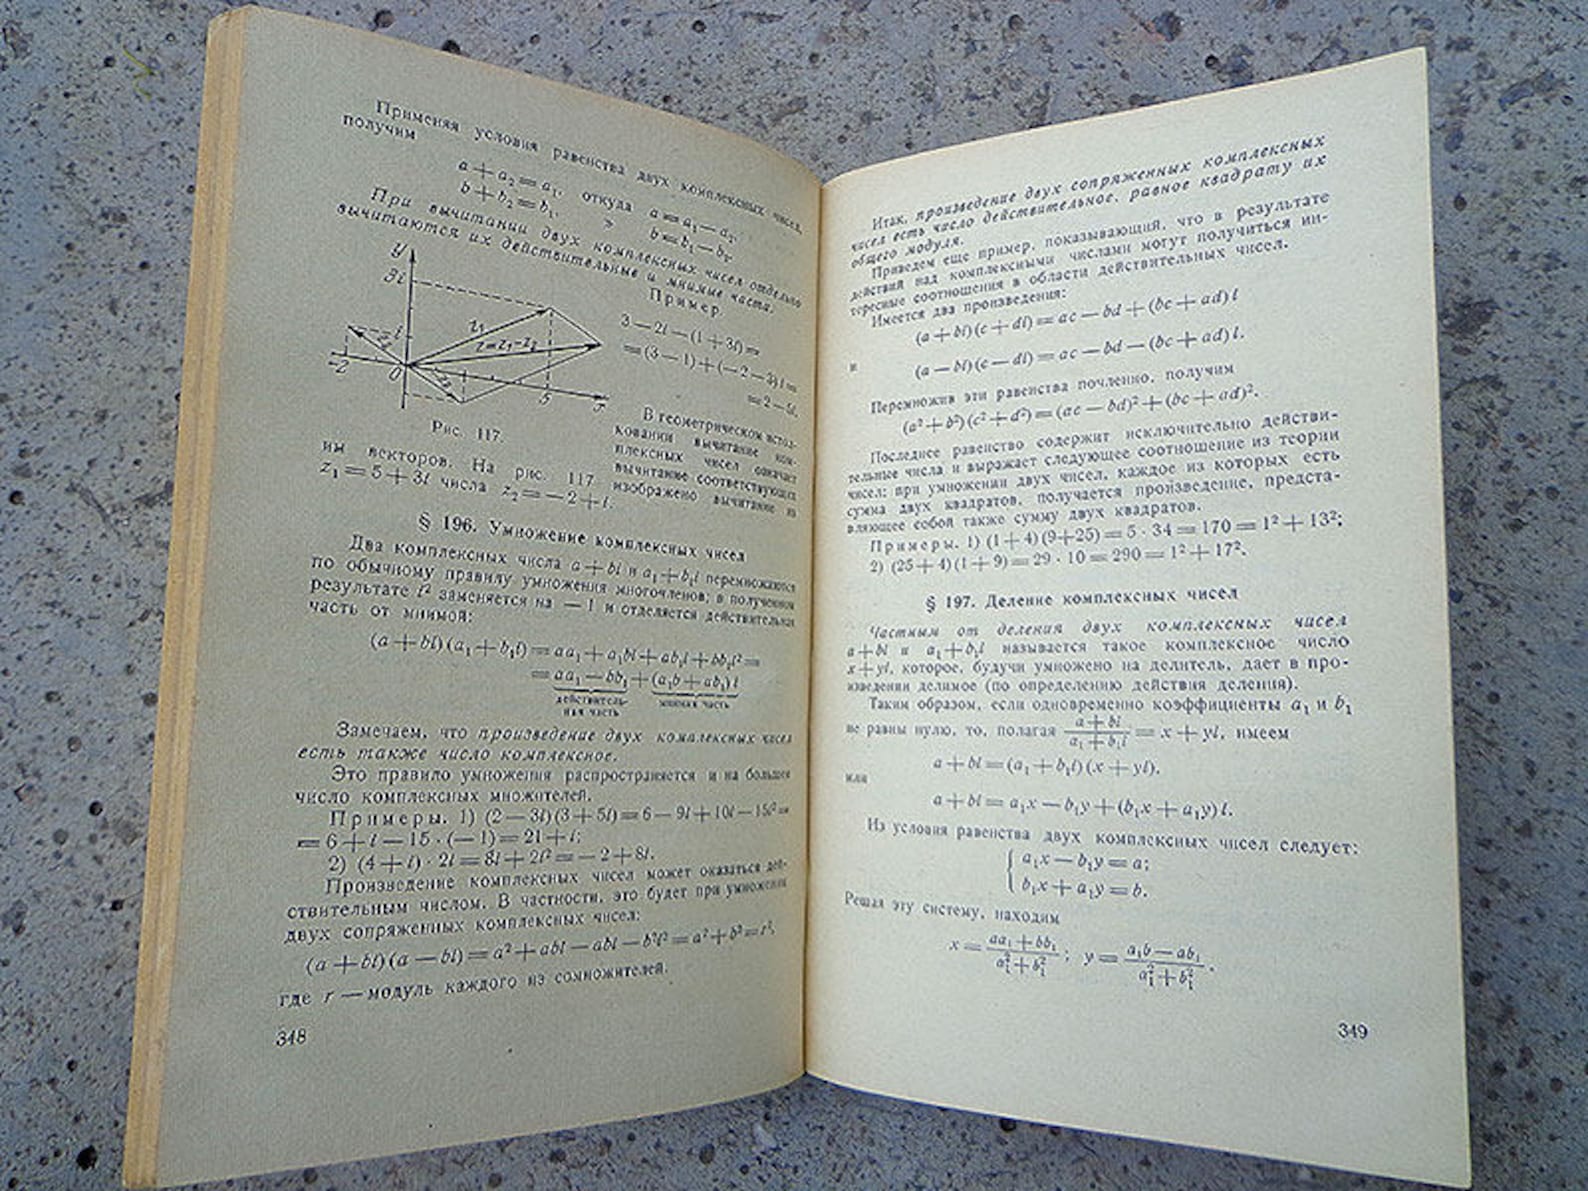 Применяя условия равенства двух комплексных чисел,
получим
a + a₂ = a₁, откуда a = a₁ — a₂,
b + b₂ = b₁, » b = b₁ — b₂.
При вычитании двух комплексных чисел отдельно
вычитаются их действительные и мнимые части.
y
3i
i
z₁
z=z₁-z₂
z₂
z₂
-2
0
5
x
Рис. 117.
Пример.
3 — 2i — (1 + 3i) =
= (3 — 1) + (— 2 — 3) i =
= 2 — 5i.
В геометрическом истол-
ковании вычитание ком-
плексных чисел означает
вычитание соответствующих
им векторов. На рис. 117 изображено вычитание из
z₁ = 5 + 3i числа z₂ = — 2 + i.
§ 196. Умножение комплексных чисел
Два комплексных числа a + bi и a₁ + b₁i перемножаются
по обычному правилу умножения многочленов; в полученном
результате i² заменяется на — 1 и отделяется действительная
часть от мнимой:
(a + bi) (a₁ + b₁i) = aa₁ + a₁bi + ab₁i + bb₁i² =
= aa₁ — bb₁ + (a₁b + ab₁) i
действитель- мнимая часть
ная часть
Замечаем, что произведение двух комплексных чисел
есть также число комплексное.
Это правило умножения распространяется и на большее
число комплексных множителей.
Примеры. 1) (2 — 3i) (3 + 5i) = 6 — 9i + 10i — 15i² =
= 6 + i — 15 · (— 1) = 21 + i;
2) (4 + i) · 2i = 8i + 2i² = — 2 + 8i.
Произведение комплексных чисел может оказаться дей-
ствительным числом. В частности, это будет при умножении
двух сопряженных комплексных чисел:
(a + bi) (a — bi) = a² + abi — abi — b²i² = a² + b² = r²,
где r — модуль каждого из сомножителей.
348
Итак, произведение двух сопряженных комплексных
чисел есть число действительное, равное квадрату их
общего модуля.
Приведем еще пример, показывающий, что в результате
действий над комплексными числами могут получиться ин-
тересные соотношения в области действительных чисел.
Имеется два произведения:
(a + bi) (c + di) = ac — bd + (bc + ad) i
и
(a — bi) (c — di) = ac — bd — (bc + ad) i.
Перемножив эти равенства почленно, получим
(a² + b²) (c² + d²) = (ac — bd)² + (bc + ad)².
Последнее равенство содержит исключительно действи-
тельные числа и выражает следующее соотношение из теории
чисел: при умножении двух чисел, каждое из которых есть
сумма двух квадратов, получается произведение, предста-
вляющее собой также сумму двух квадратов.
Примеры. 1) (1 + 4) (9 + 25) = 5 · 34 = 170 = 1² + 13²;
2) (25 + 4) (1 + 9) = 29 · 10 = 290 = 1² + 17².
§ 197. Деление комплексных чисел
Частным от деления двух комплексных чисел
a + bi и a₁ + b₁i называется такое комплексное число
x + yi, которое, будучи умножено на делитель, дает в про-
изведении делимое (по определению действия деления).
Таким образом, если одновременно коэффициенты a₁ и b₁
не равны нулю, то, полагая (a + bi)/(a₁ + b₁i) = x + yi, имеем
a + bi = (a₁ + b₁i) (x + yi).
или
a + bi = a₁x — b₁y + (b₁x + a₁y) i.
Из условия равенства двух комплексных чисел следует:
{ a₁x — b₁y = a;
b₁x + a₁y = b.
Решая эту систему, находим
x = (aa₁ + bb₁)/(a₁² + b₁²); y = (a₁b — ab₁)/(a₁² + b₁²).
349